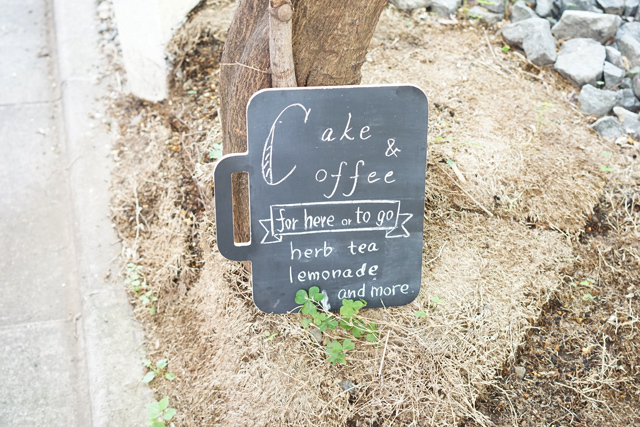 Cake
&
Coffee
for here or to go
herb tea
lemonade
and more.